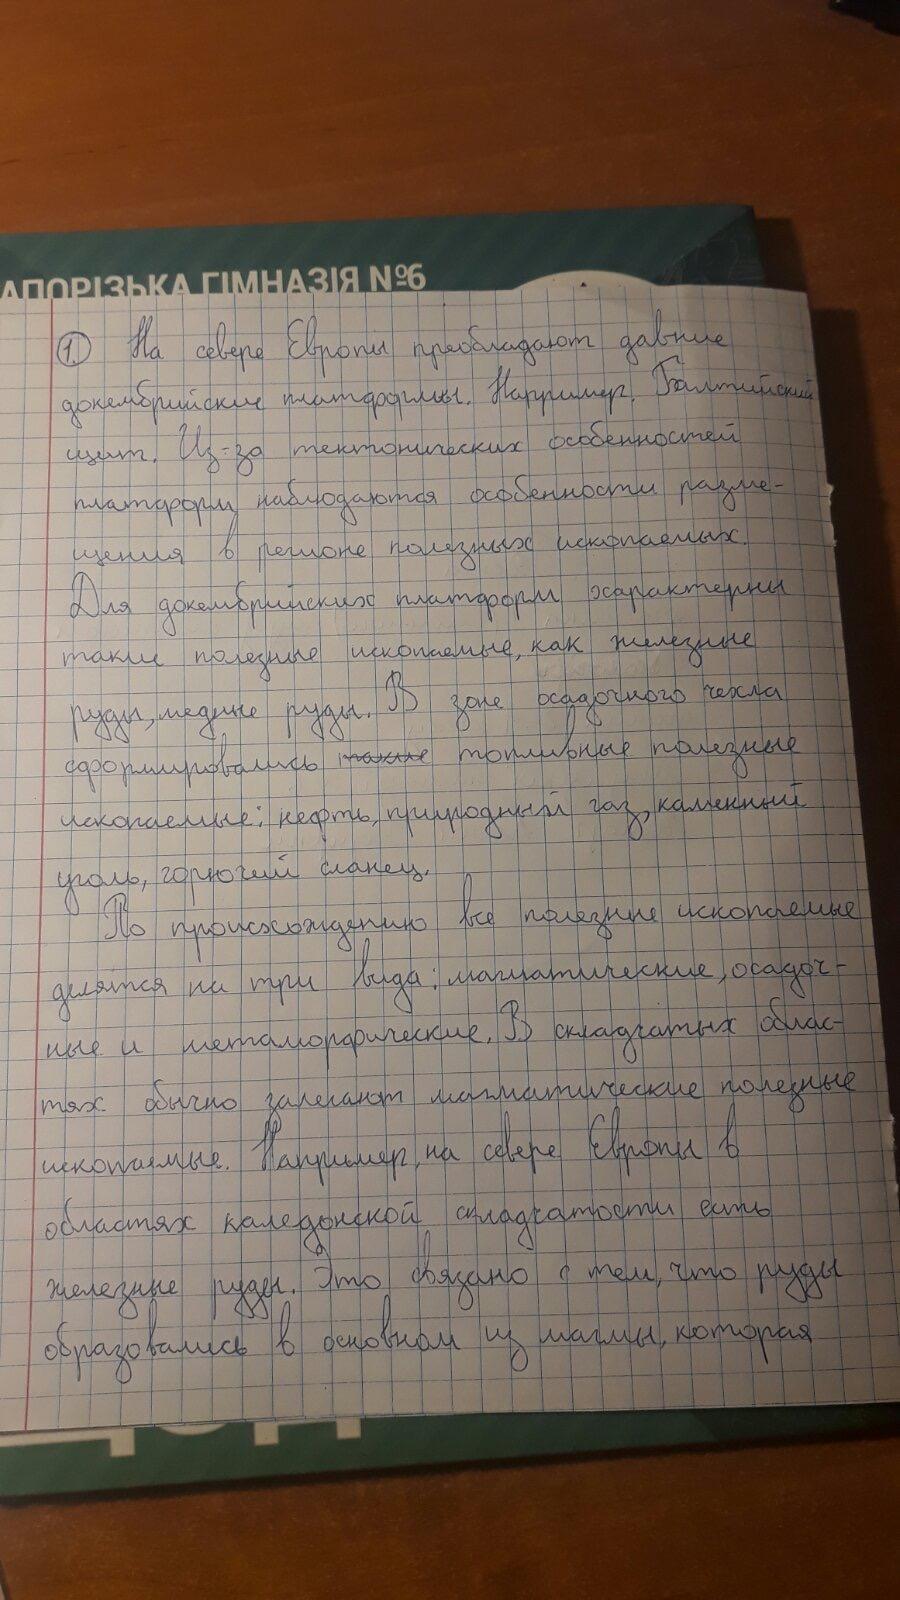 АПОРІЗЬКА ГІМНАЗІЯ №6
1. На севере Европы преобладают давние
докембрийские платформы. Например, Балтийский
щит. Из-за тектонических особенностей
платформ наблюдаются особенности разме-
щения в регионе полезных ископаемых.
Для докембрийских платформ характерны
такие полезные ископаемые, как железные
руды, медные руды. В зоне осадочного чехла
сформировались такие топливные полезные
ископаемые: нефть, природный газ, каменный
уголь, горючий сланец.
По происхождению все полезные ископаемые
делятся на три вида: магматические, осадоч-
ные и метаморфические. В складчатых облас-
тях обычно залегают магматические полезные
ископаемые. Например, на севере Европы в
областях каледонской складчатости есть
железные руды. Это связано с тем, что руды
образовались в основном из магмы, которая